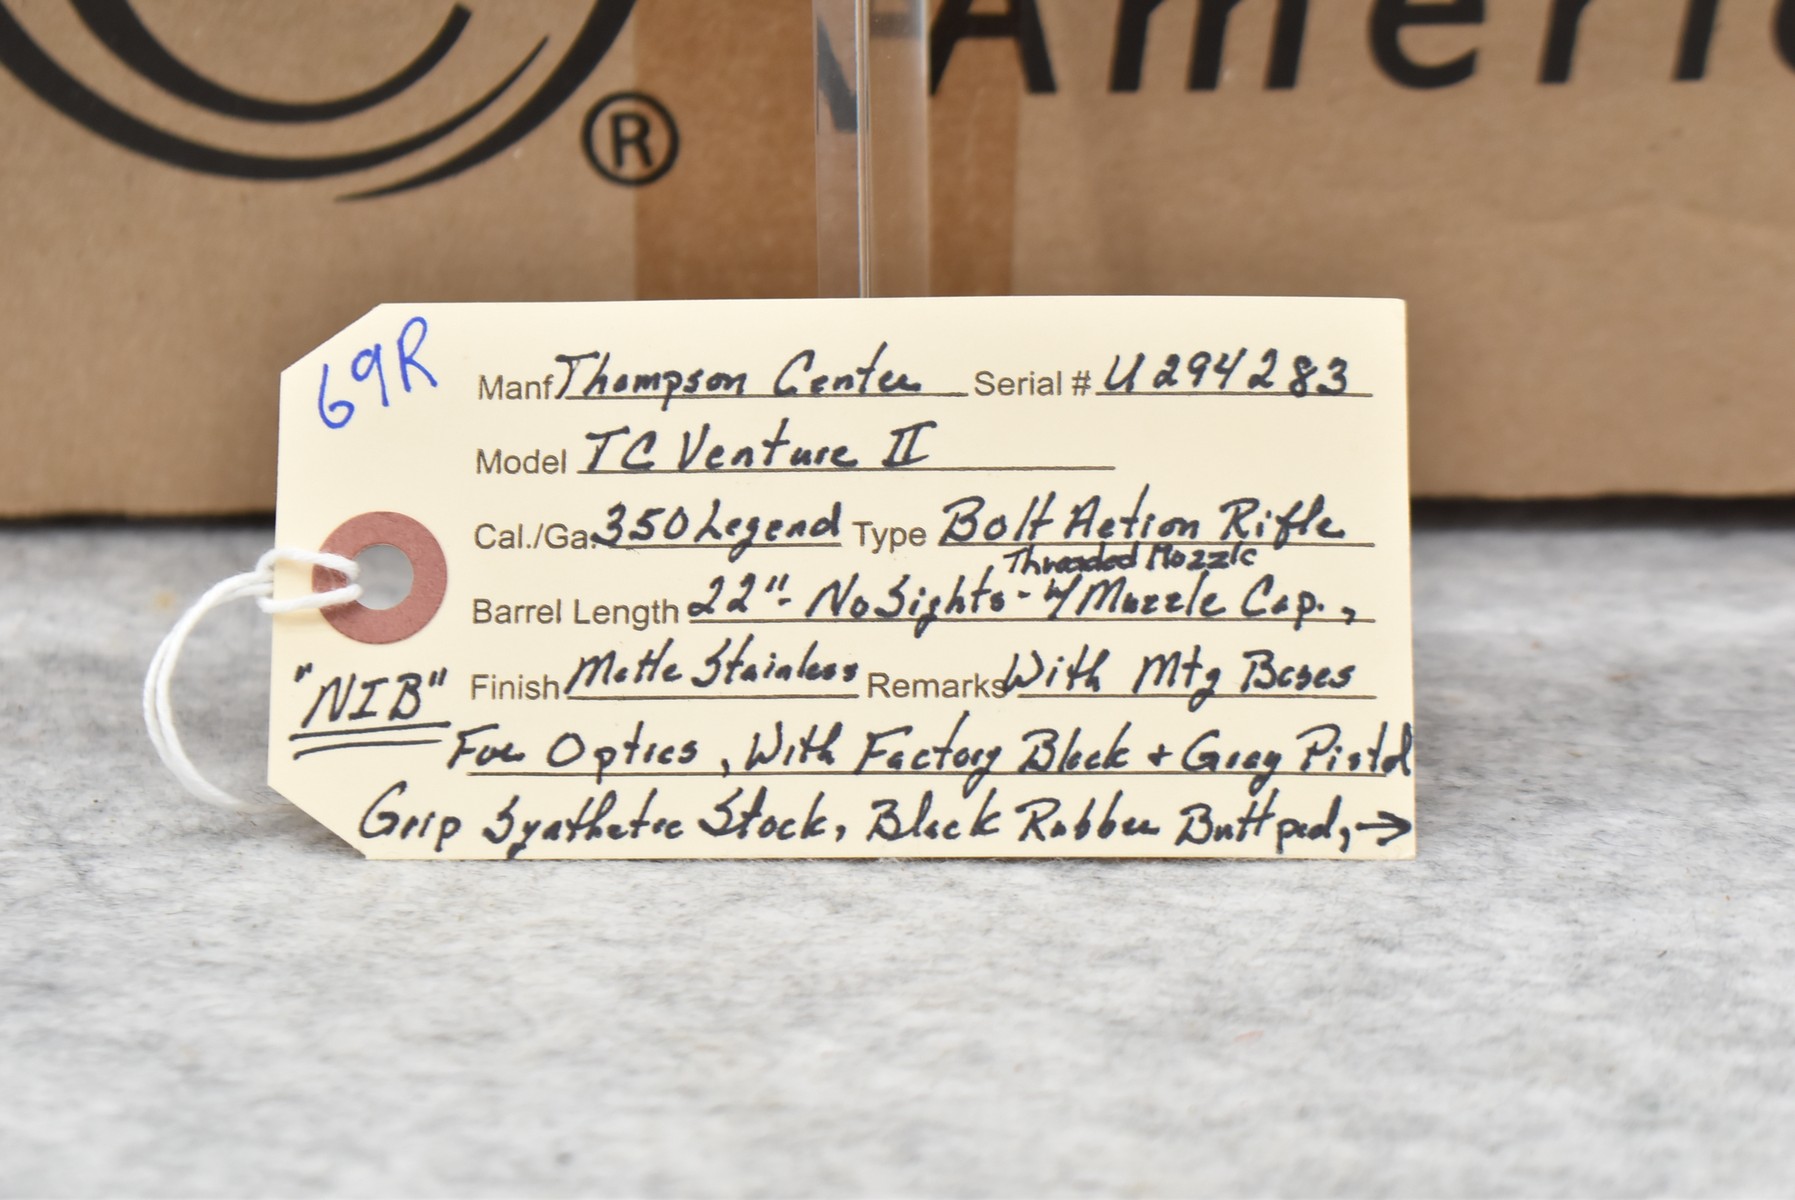 ® Ameri
69R
Manf Thompson Center Serial # U294283
Model TC Venture II
Cal./Ga. 350 Legend Type Bolt Action Rifle
Threaded Mozzle
Barrel Length 22"- No Sights - W/ Muzzle Cap.,
Finish Matte Stainless Remarks With Mtg Bases
"NIB"
For Optics, With Factory Black + Gray Pistol
Grip Synthetic Stock, Black Rubber Buttpad, →